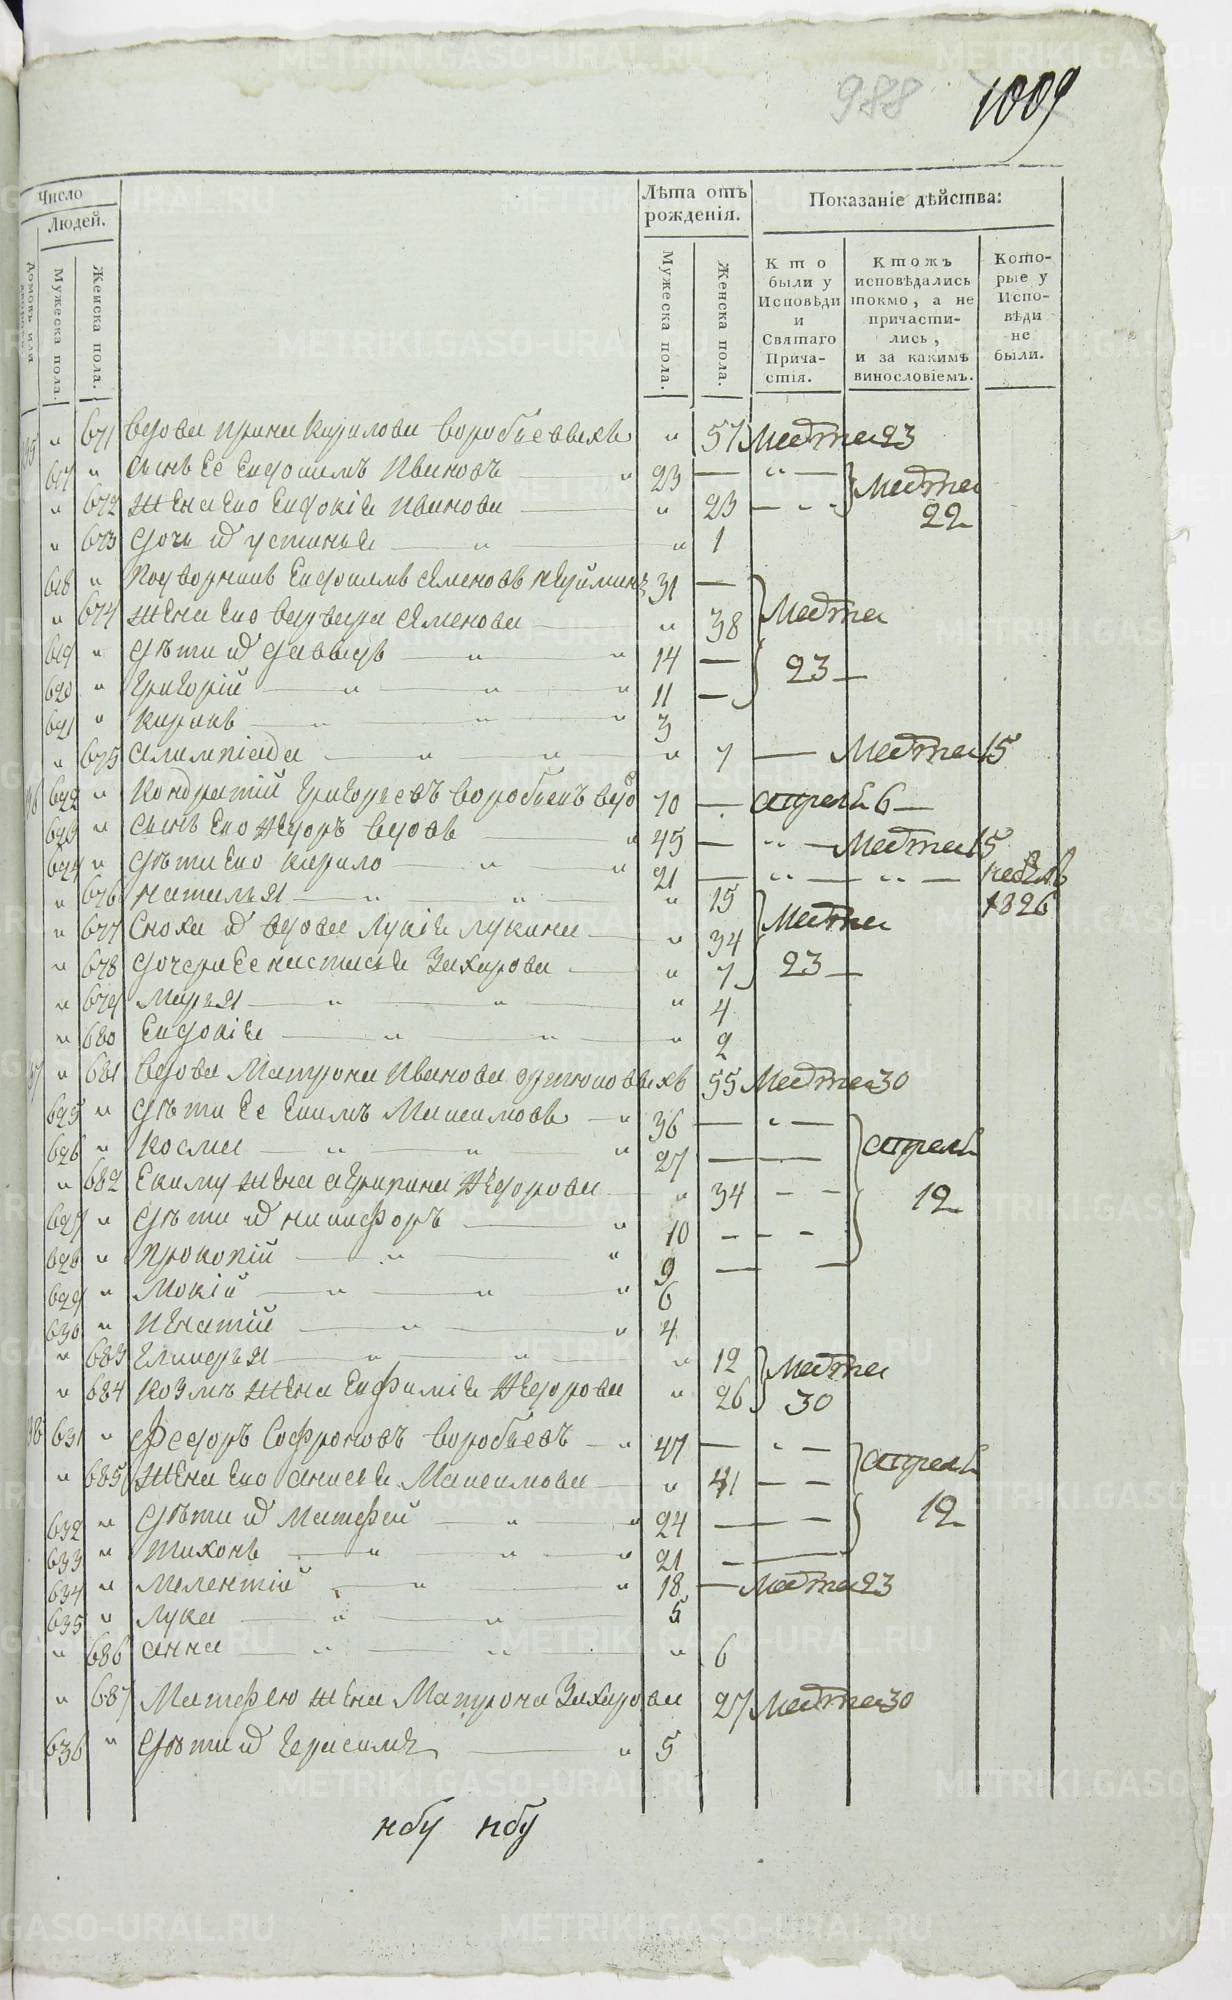 988 1009
Число
Людей.
Мужеска пола.
Женска пола.
Лѣта отъ рожденія.
Мужеска пола.
Женска пола.
Показаніе дѣйства:
Кто были у Исповѣди и Святаго Прича-стія.
Ктожъ исповѣдались токмо, а не причасти-лись, и за какимъ винословіемъ.
Кото-рые у Испо-вѣди не были.
" 671 Вдова Ирина Кирилова Воробьевыхъ " 57 Марта 23
617 " Сынъ Ее Евдокимъ Ивановъ " 23 — " —
" 672 Жена Его Евдокія Иванова " 23 — Марта 22
" 673 Дочь их Устинья " " 1
618 " Подворникъ Евдокимъ Семеновъ 31 —
" 674 Жена Его Варвара Семенова " 38 Марта
619 " Дѣти их Давыдъ " " 14 — 23 —
620 " Григорій " " " 11 —
621 " Киракъ " " " 3
" 675 Алимпіада " " " 7 — Марта 15
622 " Кондратій Григорьевъ Воробьевъ вдо 70 — Апреля 6 —
623 " Сынъ Его Федоръ вдовъ " 45 — " — Марта 15
624 " Дѣти Его Кирило " " 21 — " — " —
1826
" 676 Наталья " " " 15
" 677 Сноха их вдова Лукія Лукина " 34 Марта
" 678 Дочери Ее Настасья Захарова " 7 23 —
" 679 Марья " " " 4
" 680 Евдокія " " " 2
" 681 Вдова Матрона Иванова 55 Марта 30
625 " Дѣти Ее Екимъ Максимовъ " 36 — " —
626 " Косма " " " 27 — — Апреля
" 682 Екиму жена Агрипина Федорова " 34 — — 12
627 " Дѣти их Никифоръ " 10 — — —
628 " Прокопій " " 9 — —
629 " Мокій " " " 6
630 " Игнатій " " 4
" 683 Гликерья " " " 12 Марта
" 684 Козмѣ жена Евфимія Федорова " 26 30
631 " Федоръ Софроновъ Воробьевъ " 47 — " —
" 685 Жена Его Анисья Максимова " 41 — — Апреля
632 " Дѣти их Матфей " " 24 — — 12
633 " Тихонъ " " " 21 — —
634 " Мелентій " " 18 — Марта 23
635 " Лука " " 5
" 686 Анна " " " 6
" 687 Матфею жена Матрона Захарова 27 Марта 30
636 " Дѣти их Герасимъ " 5
нбу нбу